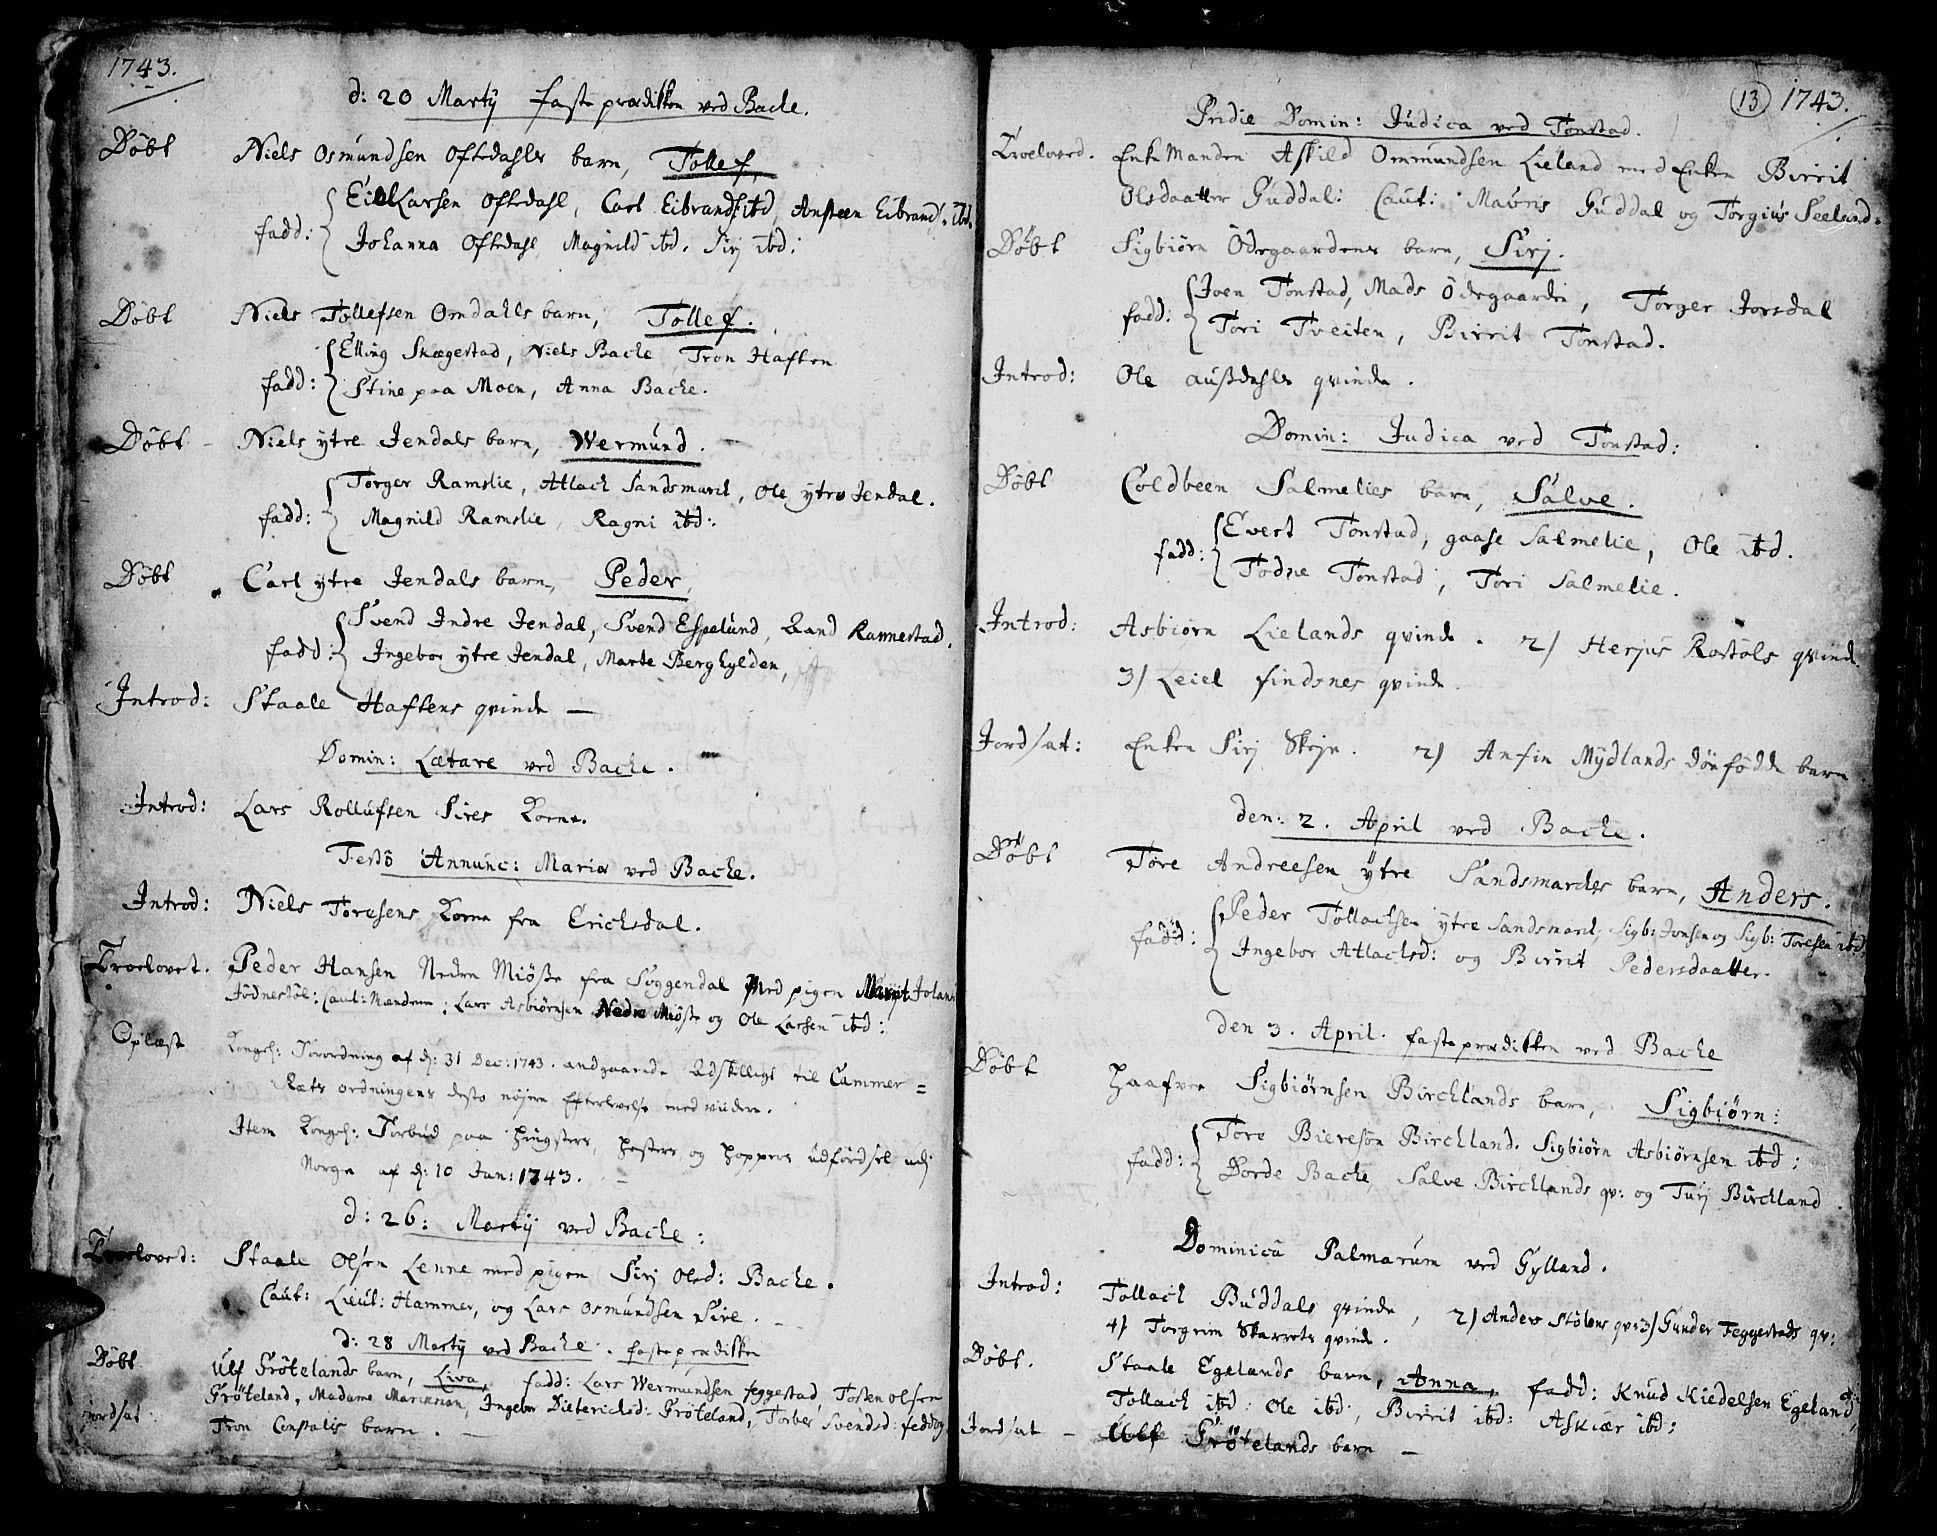 1743.
d: 20 Martij faste prædiken ved Bache.
Döbt Niels Osmundsen Oftedahls barn, Tollef,
fadd: Eiel Larsen Oftedahl, Carl Eibrands: ibd, Ansteen Eibrands: ibd.
Johanna Oftedahl Magnild ibd. Sirj ibd:
Döbt Niels Tollefsen Omdahls barn, Tollef.
fadd: Elling Skægestad, Niels Bache, Tron Haften
Stine paa Moen, Anna Bache.
Döbt Niels ytre Jendals barn, Wermund.
fadd: Torger Ramslie, Atlach Sandsmarck, Ole ytre Jendal.
Magnild Ramslie, Ragni ibd:
Döbt Carl ytre Jendals barn, Peder,
fadd: Svend Indre Jendal, Svend Espelund, Rand Rannestad,
Ingebor ytre Jendal, Marte Berghylden,
Introd: Staale Haftens qvinde —
Domin: Lætare ved Bache.
Introd: Lars Rollufsen Sires Kone.
Festo Annunc: Mariæ ved Bache.
Introd: Niels Toresens Kone fra Erichsdal.
Troelovet. Peder Hansen Nedre Miösse fra Soggendal med pigen Marrit Jolans
Födnestöl: Caut: Mændene: Lars Asbiörnsen Nedre Miösse og Ole Larsen ibd:
Oplæst Kongel: Forordning af d: 31 Dec: 1743. andgaaende Adskilligt til Cammer=
Rets ordningens desto nöjere Efterlevelse med videre.
Item Kongel: Forbud paa Hingster, Hester og Hoppers udförsel udj
Norge af d: 10 Jan: 1743.
d: 26: Martij ved Bache:
Troelovet: Staale Olsen Lenne med pigen Sirj Olsd: Bache.
Caut: Lieut: Hammer, og Lars Osmundsen Sire.
d: 28 Martij ved Bache. faste prædiken
Döbt Ulf Frötelands barn, Liva, fadd: Lars Wermundsen feggestad, Tosten Olsen
Fröteland, Madame Mariman, Ingebor Dietericksd: Fröteland, Torber Svendsd: fedde
jordsat Tron Constalis barn.
13 1743.
Pridie Domin: Judica ved Tonstad.
Troeloved. Enke Manden Askild Ommundsen Lieland med Enken Birrit
Olsdaatter Guddal: Caut: Mauris Guddal og Torgius Seeland.
Döbt Sigbiörn Ödegaardens barn, Sirj.
fadd: Joen Tonstad, Mads Ödegaarden, Torger Josdal
Tori Tveiten, Birrit Tonstad.
Introd: Ole Aussdahls qvinde.
Domin: Judica ved Tonstad:
Döbt Coldbeen Salmelies barn, Salve.
fadd: Evert Tonstad, gaase Salmelie, Ole ibd.
Todne Tonstad, Tori Salmelie.
Introd: Asbiörn Lielands qvinde. 2) Herjus Rostöls qvinde
3) Leiel findsnes qvinde.
Jordsat: Enken Sirj Skeje. 2) Anfin Mydlands dönfödde barn
den: 2. April ved Bache.
Döbt Tore Andreesen ytre Sandsmarchs barn, Anders.
fadd: Peder Tollachsen ytre Sandsmarck, Sigb: Jonsen og Sigb: Toresen ibd.
Ingebor Atlachsd: og Birrit Pedersdaatter.
den 3. April. faste prædiken ved Bache
Döbt Haafver Sigbiörnsen Birchlands barn, Sigbiörn:
fadd: Tore Bieresön Birchland. Sigbiörn Asbiörnsen ibd:
Dorde Bache, Salve Birchlands qv: og Turj Birchland.
Dominica Palmarum ved Gylland.
Introd: Tollach Buddals qvinde, 2) Anders Stölens qv: 3) Gunder Feggestads qv:
4) Torgrim Skarrets qvinde.
Döbt. Staale Egelands barn, Anna, fadd: Knud Kiedelsen Egeland,
Tollach ibd: Ole ibd, Birrit ibd: Askiær ibd:
Jordsat — Ulf Frötelands barn —